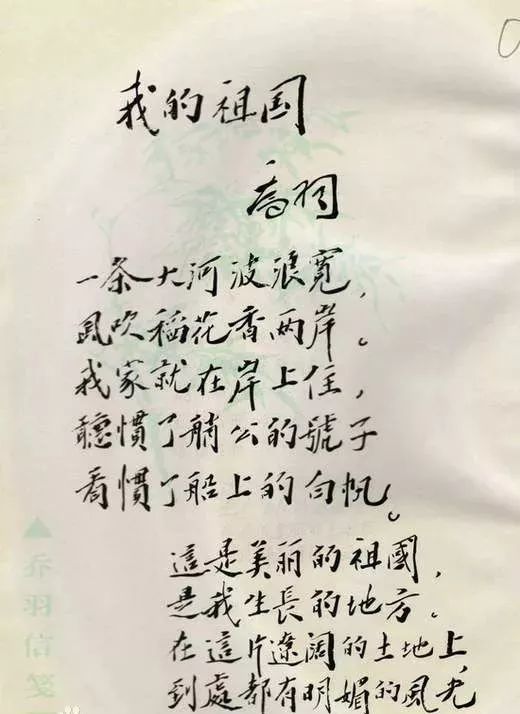 我的祖国
喬羽
一条大河波浪寬，
風吹稻花香两岸。
我家就在岸上住，
聽慣了艄公的號子
看慣了船上的白帆。
這是美丽的祖國，
是我生長的地方。
在這片遼阔的土地上，
到處都有明媚的風光
▲乔羽信笺